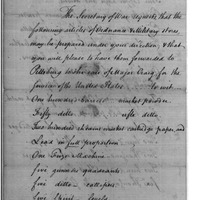 The Secretary of War reports that the
following articles of Ordnance & Military stores,
may be prepared under your direction, & that
you will please to have them forwarded to
Pittsburg to the care of Major Craig for the
service of the United States to wit
One hundred barrels musket powder
Fifty ditto rifle ditto
Two hundred reams musket cartridge paper, and
Lead in full proportion
One Machine
five gunners quadrants
five ditto callipers
five